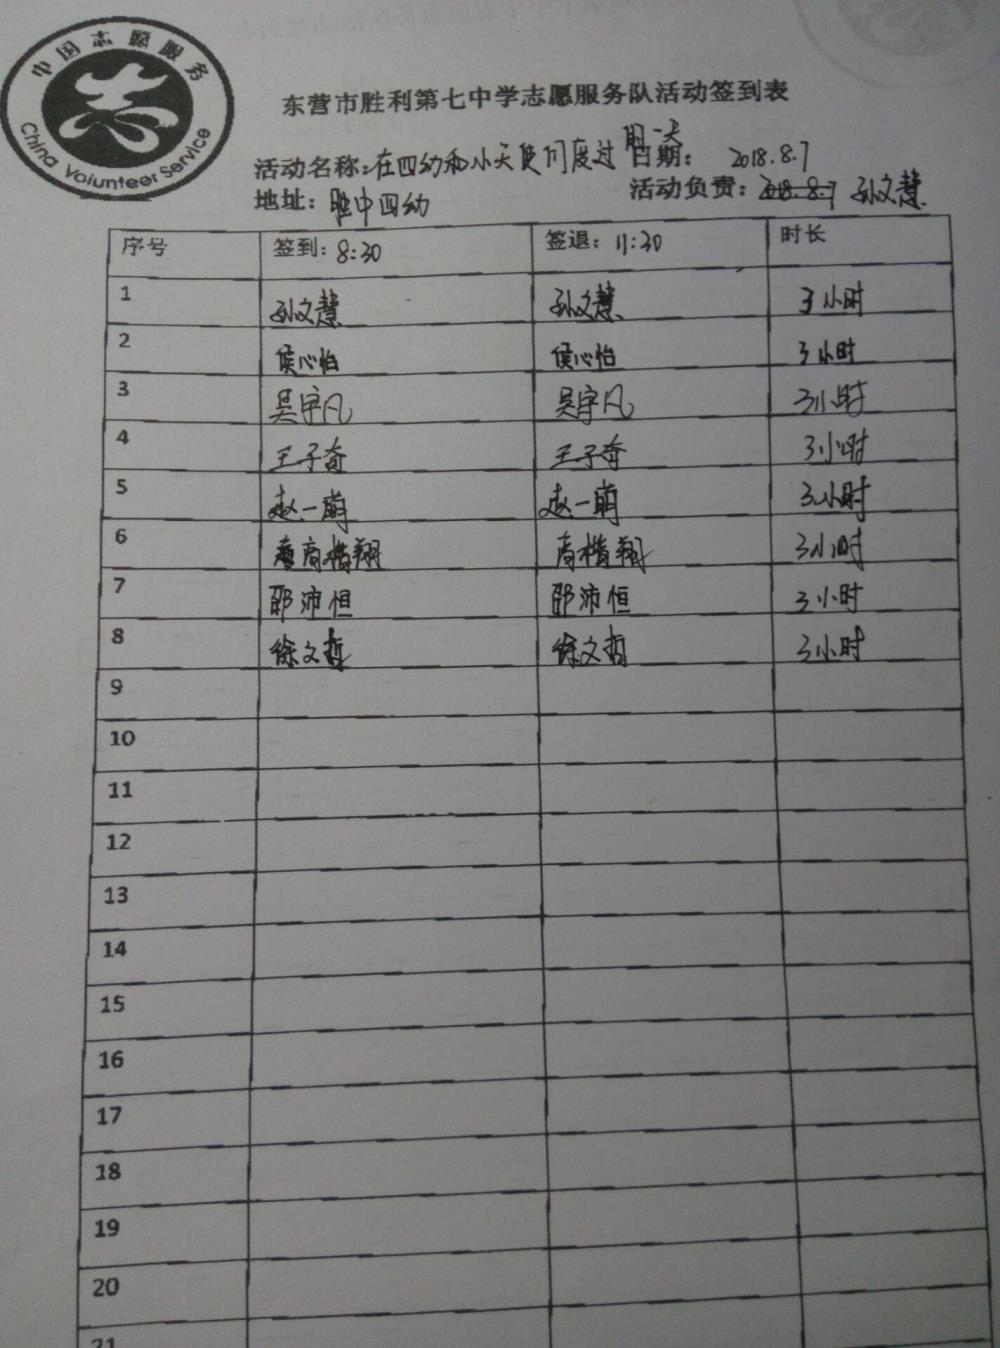 中国志愿服务
China Volunteer Service
东营市胜利第七中学志愿服务队活动签到表
活动名称:在四幼和小天使们度过的一天 日期: 2018.8.7
地址: 胜中四幼 活动负责: 2018.8.7 孙文慧
序号 签到: 8:30 签退: 11:30 时长
1 孙文慧 孙文慧 3小时
2 侯心怡 侯心怡 3小时
3 吴宇凡 吴宇凡 3小时
4 王子奇 王子奇 3小时
5 赵一萌 赵一萌 3小时
6 高楷翔 高楷翔 3小时
7 邵沛恒 邵沛恒 3小时
8 徐文哲 徐文哲 3小时
9
10
11
12
13
14
15
16
17
18
19
20
21